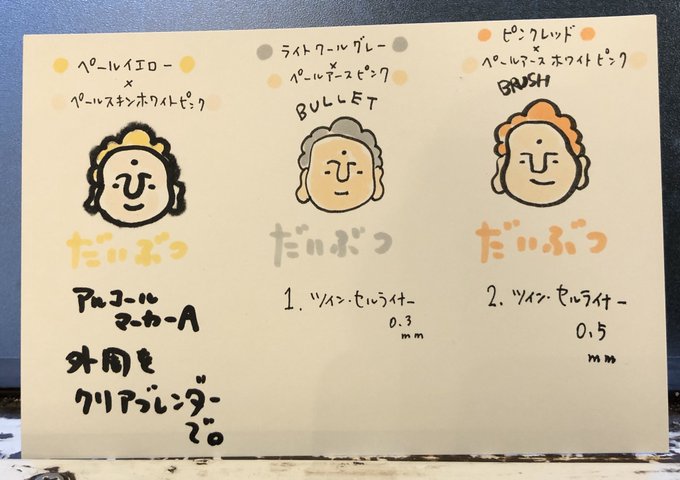 ペールイエロー
×
ペールスキンホワイトピンク
だいぶつ
アルコール
マーカーA
外周を
クリアブレンダー
で。
ライトクールグレー
×
ペールアースピンク
BULLET
だいぶつ
1. ツイン・セルライナー
0.3
mm
ピンクレッド
×
ペールアースホワイトピンク
BRUSH
だいぶつ
2. ツイン・セルライナー
0.5
mm